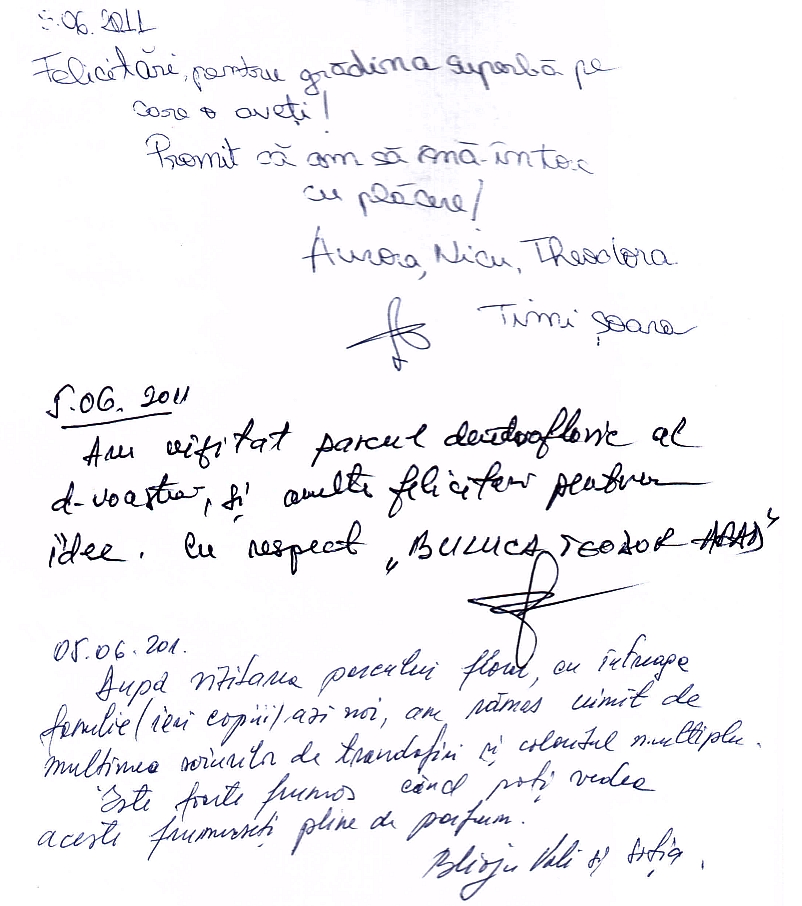 5.06.2011
Felicitări, pentru grădina superbă pe
care o aveți!
Promit că am să mă-întorc
cu plăcere!
Aurora, Nicu, Theodora
Timișoara
5.06.2011
Am vizitat parcul dendrofloric al
d-voastra, și multe felicitari pentru
idee. Cu respect „BULUCA TEODOR ARAD”
05.06.201.
După vizitarea parcului floral, cu întreaga
familie (ieri copiii) azi noi, am rămas uimit de
multimea soiurilor de trandafiri și coloritul multiplu.
Este foarte frumos când poți vedea
aceste frumuseți pline de parfum.
Vali și Sofia.